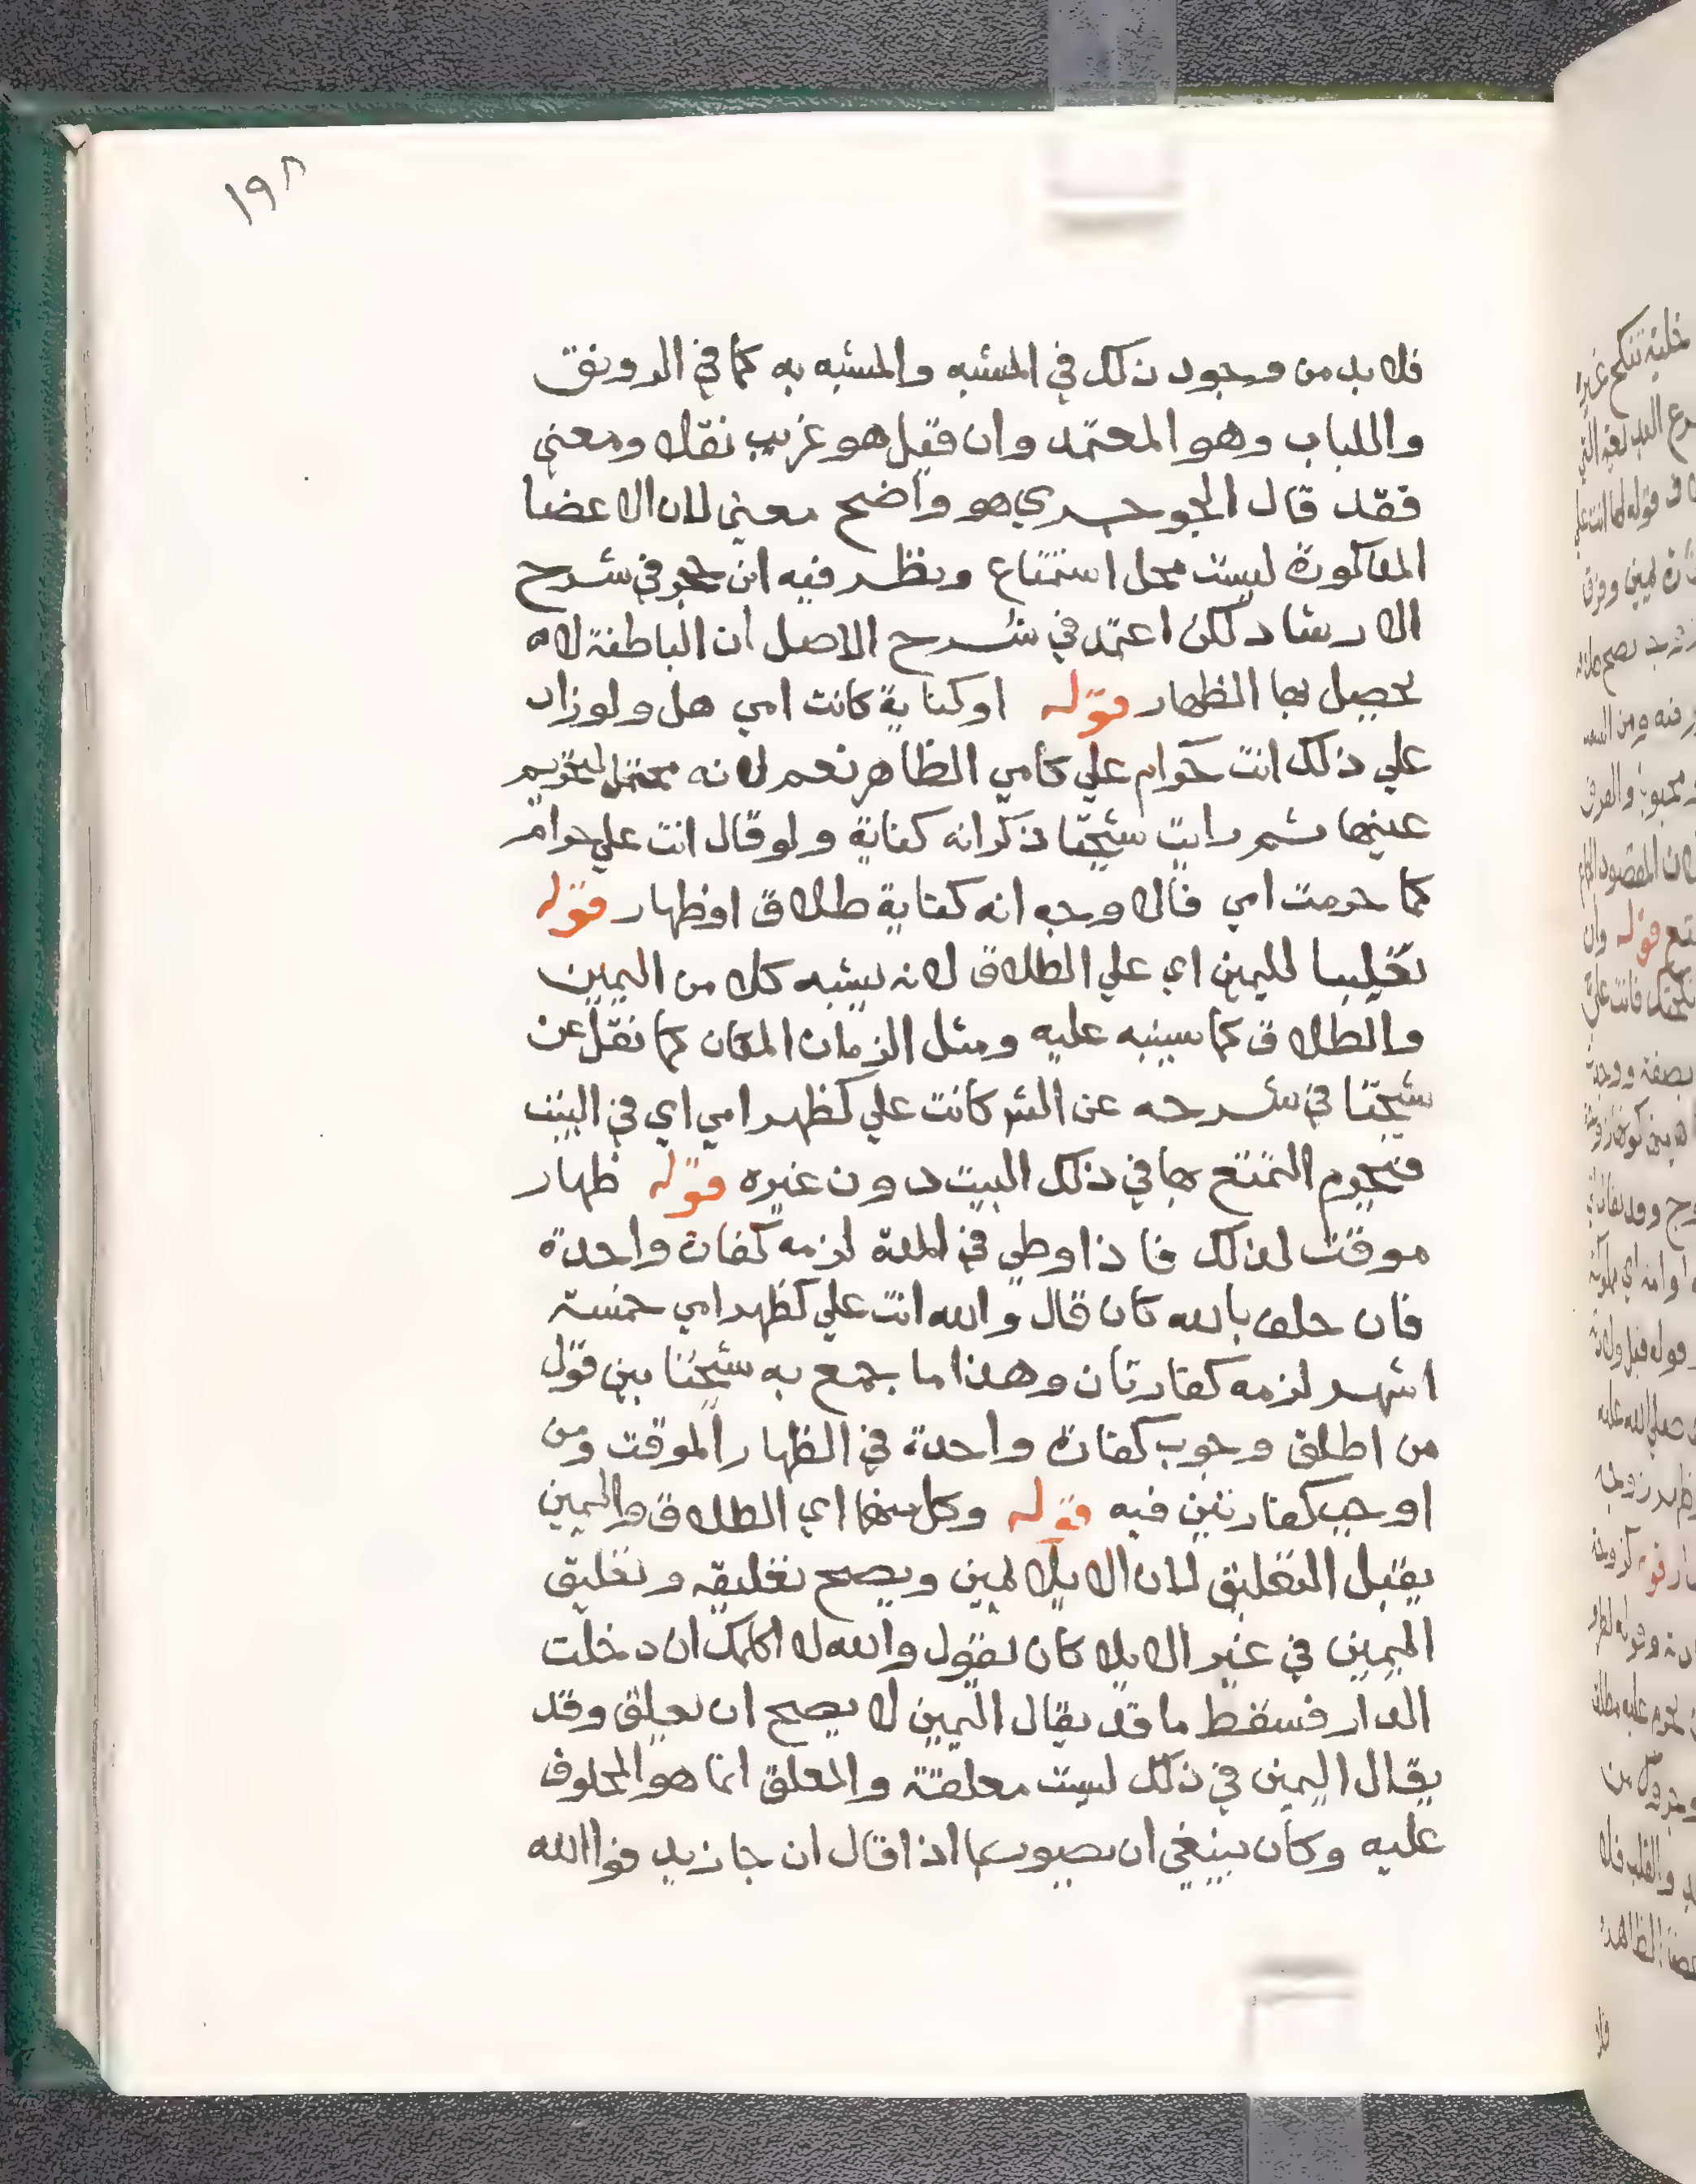 ١٩٨
فلا بد من وجود ذلك في المشبه والمشبه به كما في الرونق
واللباب وهو المعتمد وان قيل هو غريب نقلا ومعني
فقد قال الجوجري هو واضح معني لان الاعضا
المذكورة ليست محل استمتاع ونظر فيه ابن حجر في شرح
الارشاد لكن اعتمد في شرح الاصل ان الباطنة لا
يحصل بها الظهار قوله او كناية كانت امي هل ولو زاد
علي ذلك انت حرام علي كامي الظاهر نعم لانه محتمل لتحريم
عينها ثم رايت شيخنا ذكر انه كناية ولو قال انت علي حرام
كما حرمت امي فالاوجه انه كناية طلاق اوظهار قوله
تغليبا لليمين اي علي الطلاق لانه يشبه كلا من اليمين
والطلاق كما سينبه عليه ومثل الزمان المكان كما نقل عن
شيخنا في شرحه عن الشر كانت علي كظهر امي اي في البيت
فيحرم التمتع بها في ذلك البيت دون غيره قوله ظهار
موقت لذلك فاذا وطي في المدة لزمه كفارة واحدة
فان حلف بالله كان قال والله انت علي كظهر امي خمسة
اشهر لزمه كفارتان وهذا ما جمع به شيخنا بين قول
من اطلق وجوب كفارة واحدة في الظهار الموقت ومن
اوجب كفارتين فيه قوله وكل منهما اي الطلاق واليمين
يقبل التعليق لان الايلا يمين ويصح تعليقه وتعليق
اليمين في غير الايلا كان يقول والله لا اكلمك ان دخلت
الدار فسقط ما قد يقال اليمين لا يصح ان يعلق وقد
يقال اليمين في ذلك ليست معلقة والمعلق انما هو المحلوف
عليه وكان ينبغي ان اذا قال ان جا زيد فوالله